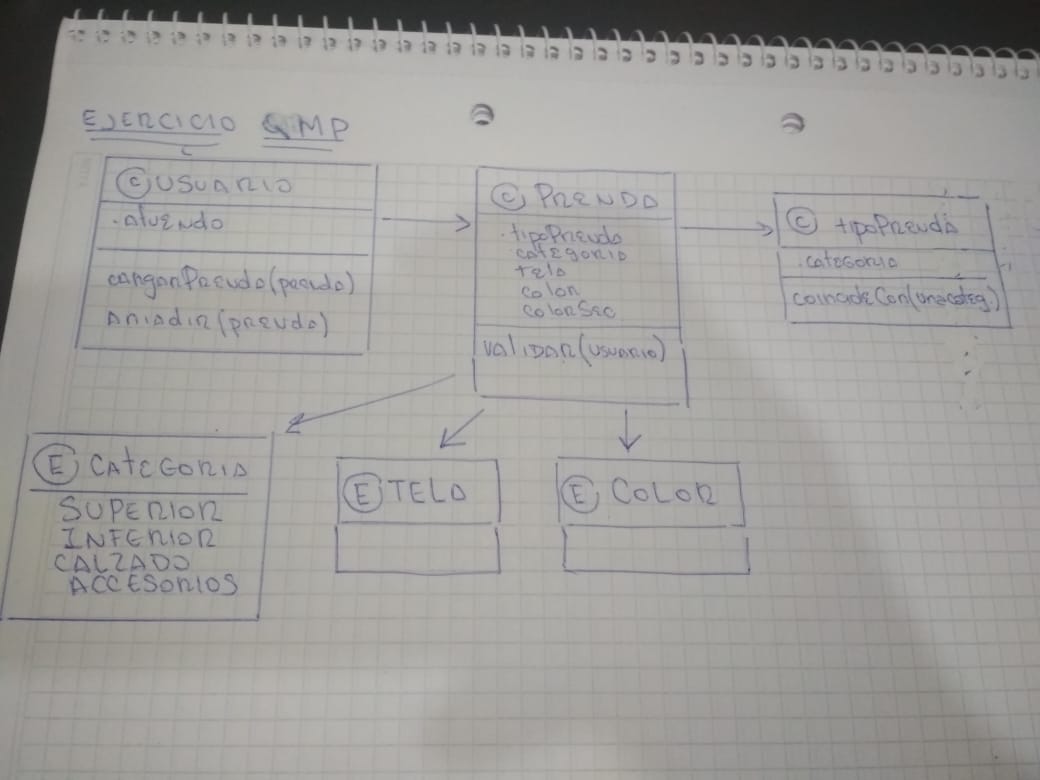 EJERCICIO QMP
C USUARIO
.atuendo
cargarPrenda(prenda)
aniadir(prenda)
C PRENDA
.tipoPrenda
categoria
tela
color
colorSec
validar(usuario)
C tipoPrenda
.categoria
coincideCon(unacateg.)
E CATEGORIA
SUPERIOR
INFERIOR
CALZADO
ACCESORIOS
E TELA
E COLOR